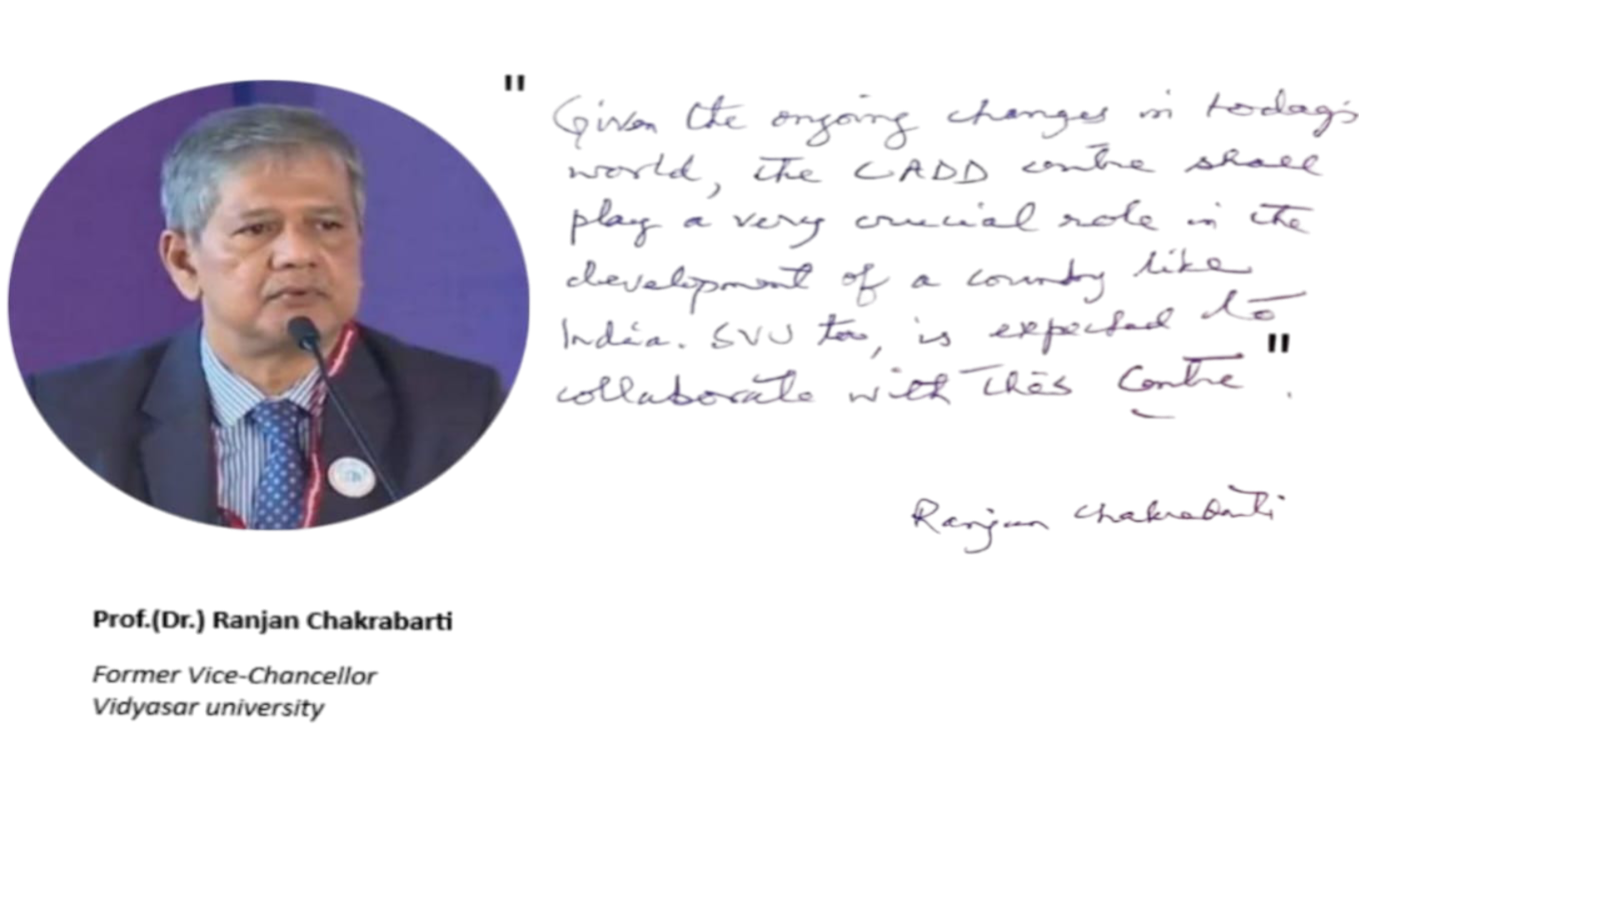 "
Given the ongoing changes in today's
world, the CADD centre shall
play a very crucial role in the
development of a country like
India. SVU too, is expected to
collaborate with this Centre".
Ranjan Chakrabarti
Prof.(Dr.) Ranjan Chakrabarti
Former Vice-Chancellor
Vidyasar university